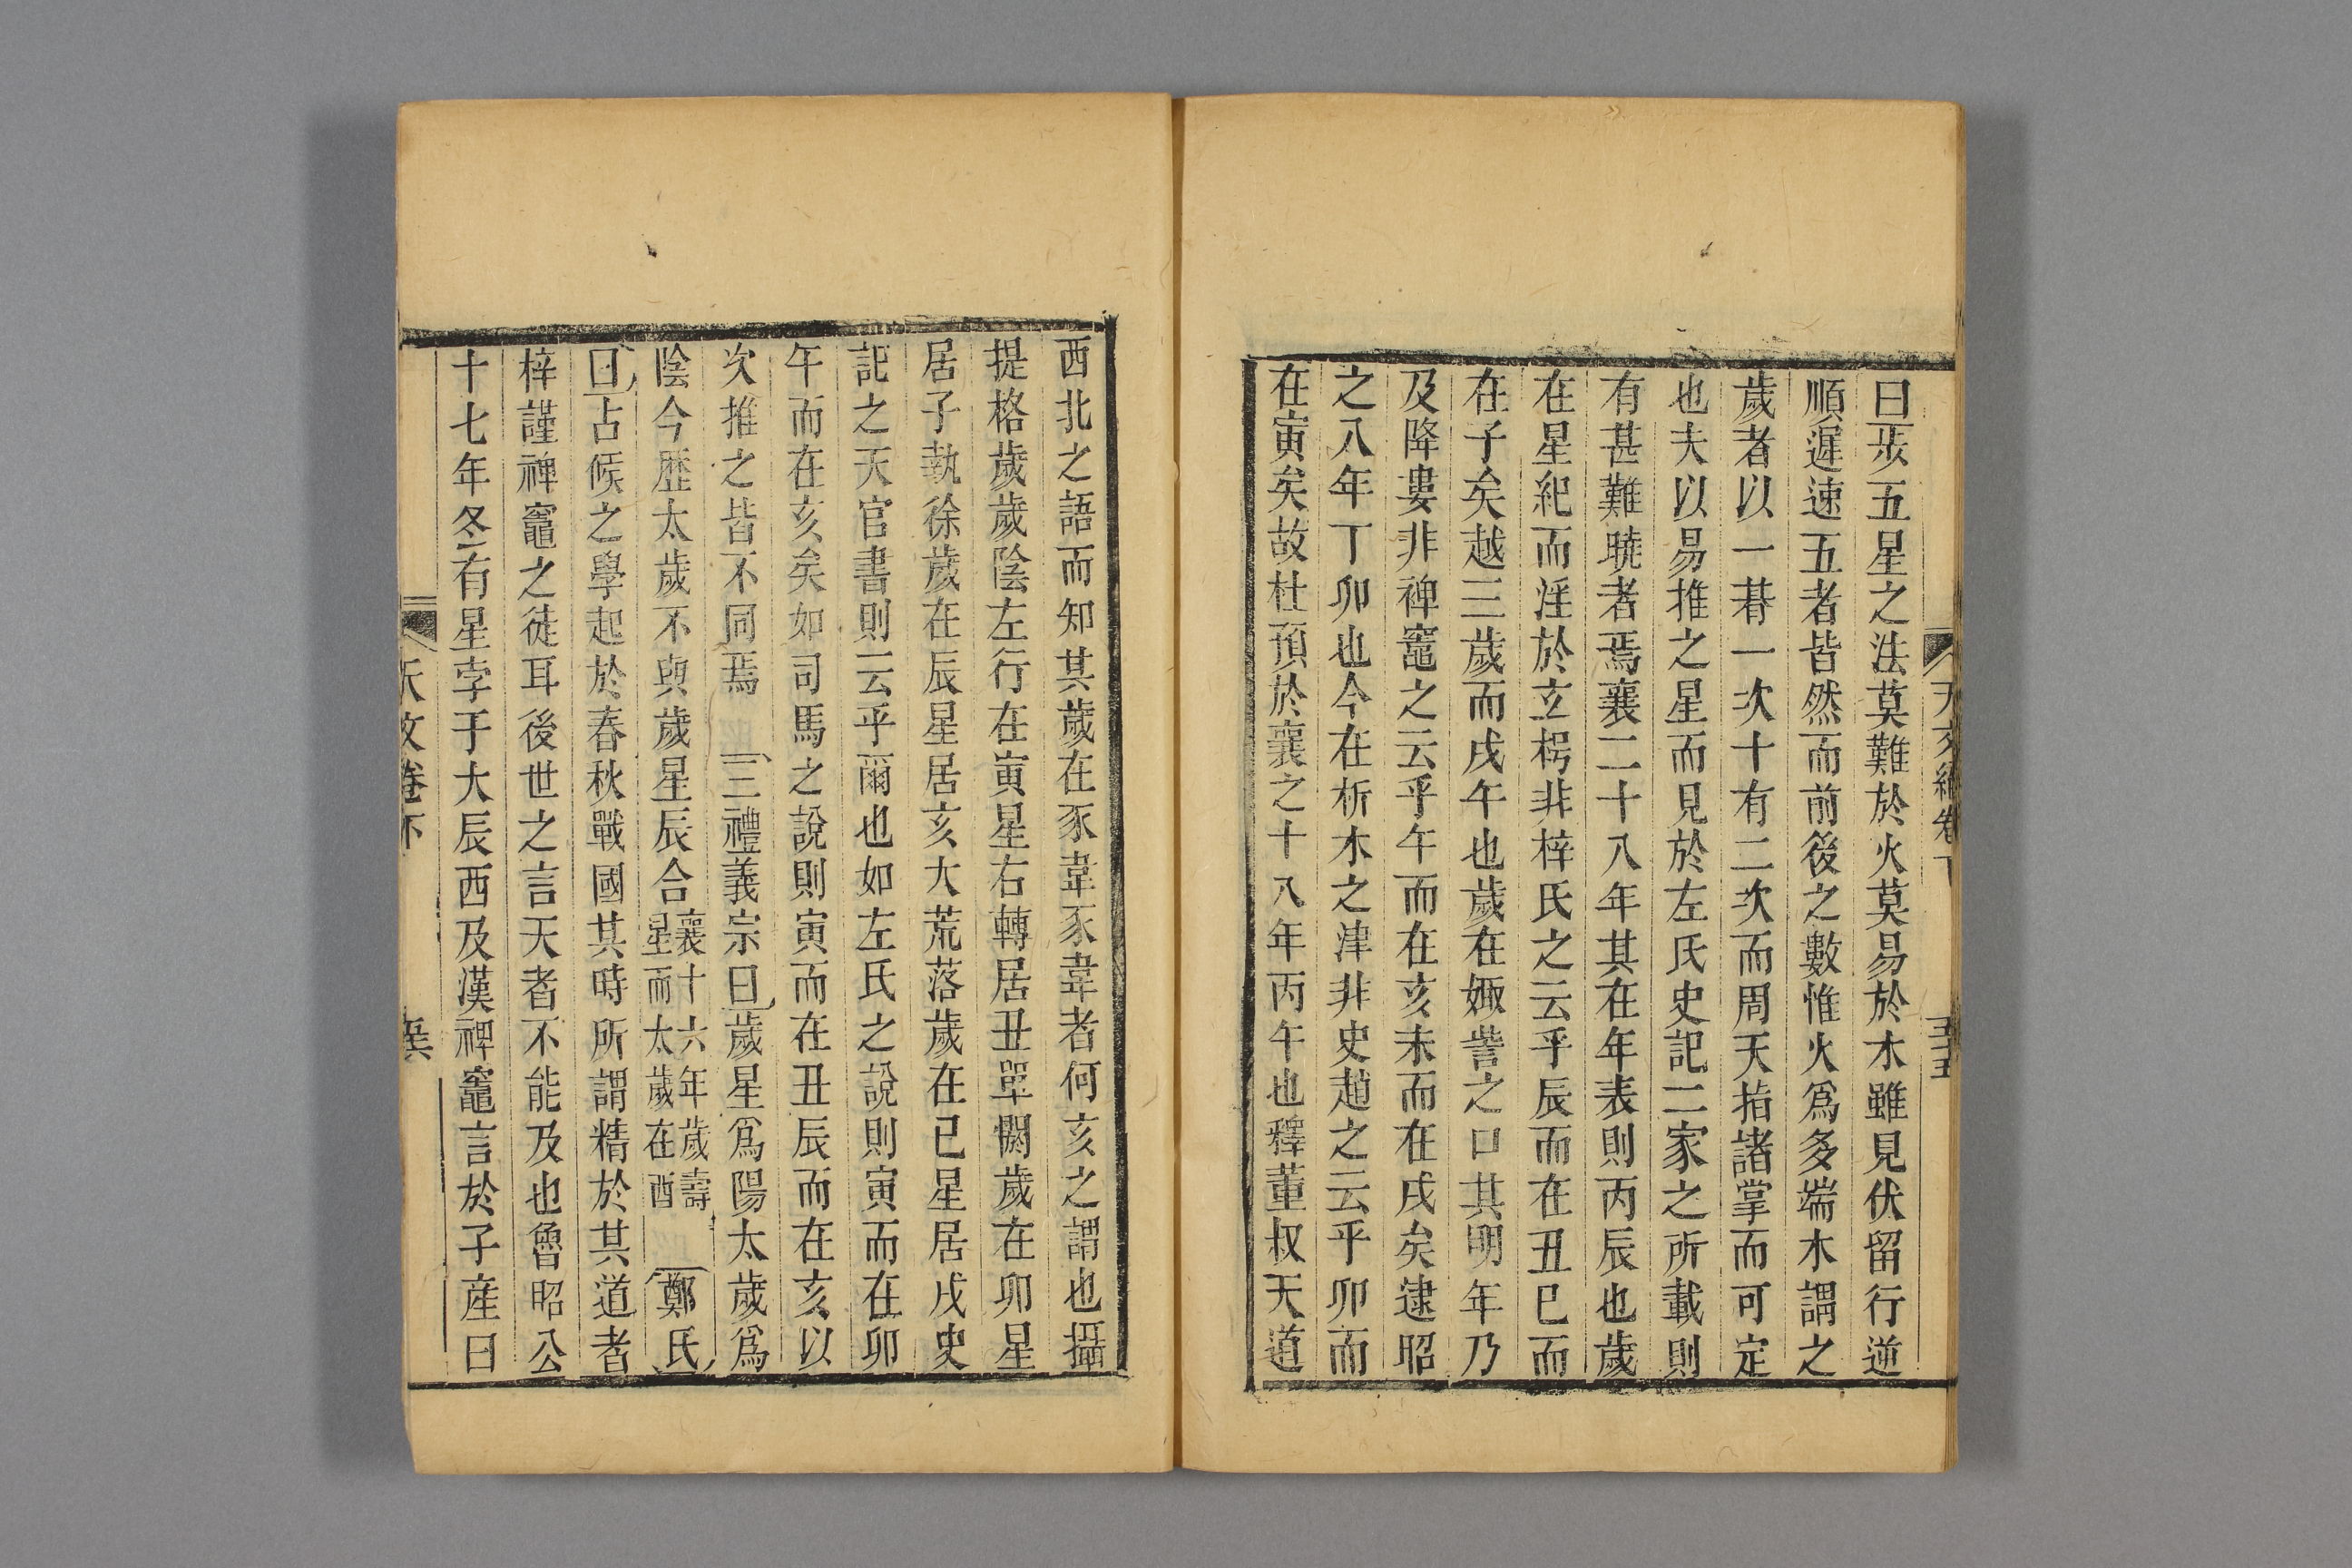 曰步五星之法莫難於火莫易於木雖見伏留行逆
順遲速五者皆然而前後之數惟火爲多端木謂之
歲者以一朞一次十有二次而周天指諸掌而可定
也夫以易推之星而見於左氏史記二家之所載則
有甚難曉者焉襄二十八年其在年表則丙辰也歲
在星紀而淫於玄枵非梓氏之云乎辰而在丑巳而
在子矣越三歲而戌午也歲在娵訾之口其明年乃
及降婁非禆竈之云乎午而在亥未而在戌矣逮昭
之八年丁卯也今在析木之津非史趙之云乎卯而
在寅矣故杜預於襄之十八年丙午也釋董叔天道
西北之語而知其歲在豕韋豕韋者何亥之謂也攝
提格歲歲陰左行在寅星右轉居丑單閼歲在卯星
居子執徐歲在辰星居亥大荒落歲在巳星居戌史
記之天官書則云乎爾也如左氏之說則寅而在卯
午而在亥矣如司馬之說則寅而在丑辰而在亥以
次推之皆不同焉 三禮義宗曰歲星爲陽太歲爲
陰今歷太歲不與歲星辰合襄十六年歲壽星而太歲在酉 鄭氏
曰占候之學起於春秋戰國其時所謂精於其道者
梓謹禆竈之徒耳後世之言天者不能及也魯昭公
十七年冬有星孛于大辰西及漢禆竈言於子產曰
天文卷下